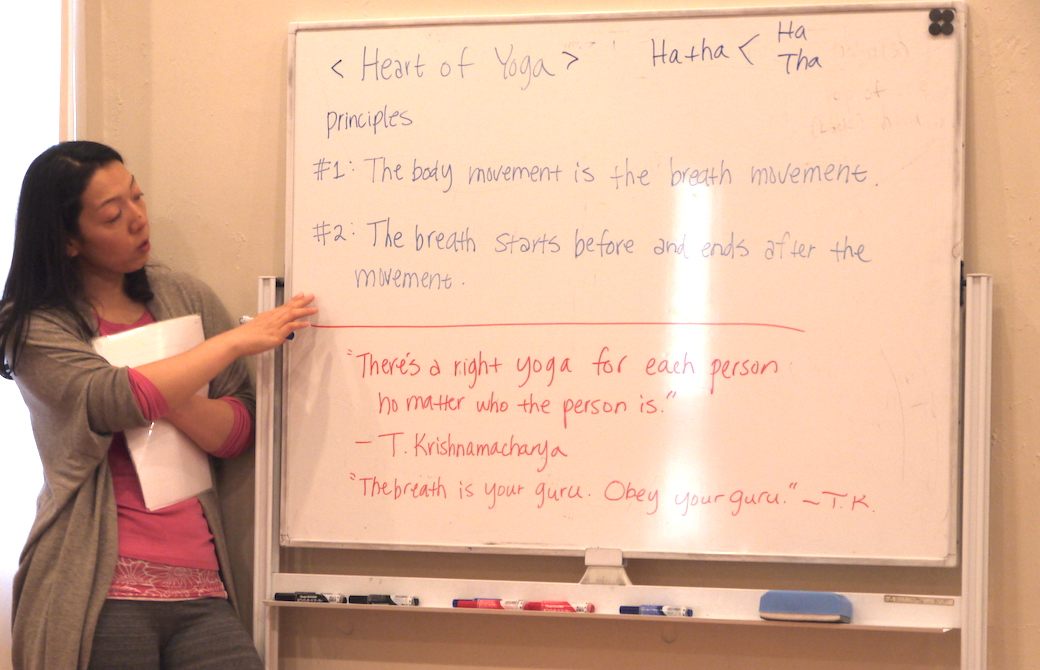 < Heart of Yoga >
Hatha < Ha
Tha
principles
#1: The body movement is the breath movement.
#2: The breath starts before and ends after the
movement.
"There's a right yoga for each person
no matter who the person is."
— T. Krishnamacharya
"The breath is your guru. Obey your guru." ~ T.K.